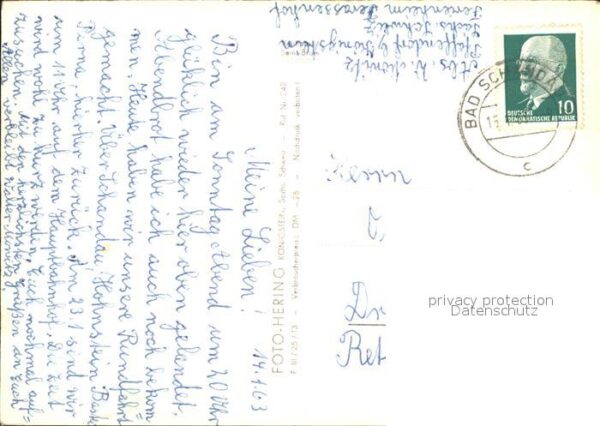 Abs. W. Monitz
Pfaffendorf b Königstein
Sächs. Schweiz
Ferienheim
DEUTSCHE
DEMOKRATISCHE REPUBLIK
10
BAD SCHANDAU
c
14.1.63
Meine Lieben!
Bin am Sonntag Abend um 20 Uhr
glücklich wieder hier oben gelandet.
Abendbrot habe ich auch noch bekom
men. Heute haben wir unsere Rundfahrt
gemacht. Über Schandau, Hohnstein, Bastei
Pirna, hierher zurück. Am 23.1 sind wir
um 11 Uhr auf dem Hauptbahnhof, die Zeit
wird wohl zu kurz werden, Euch nochmal auf-
zusuchen. Mit den herzlichsten Grüßen an Euch
Allen verbleibt Vater Monitz
FOTO-HERING KÖNIGSTEIN, Sächs. Schweiz
Ruf Nr. 242
F III/25/13 — Verbraucherpreis: DM —.25 — Nachdruck verboten!
Dr
Ret
privacy protection
Datenschutz